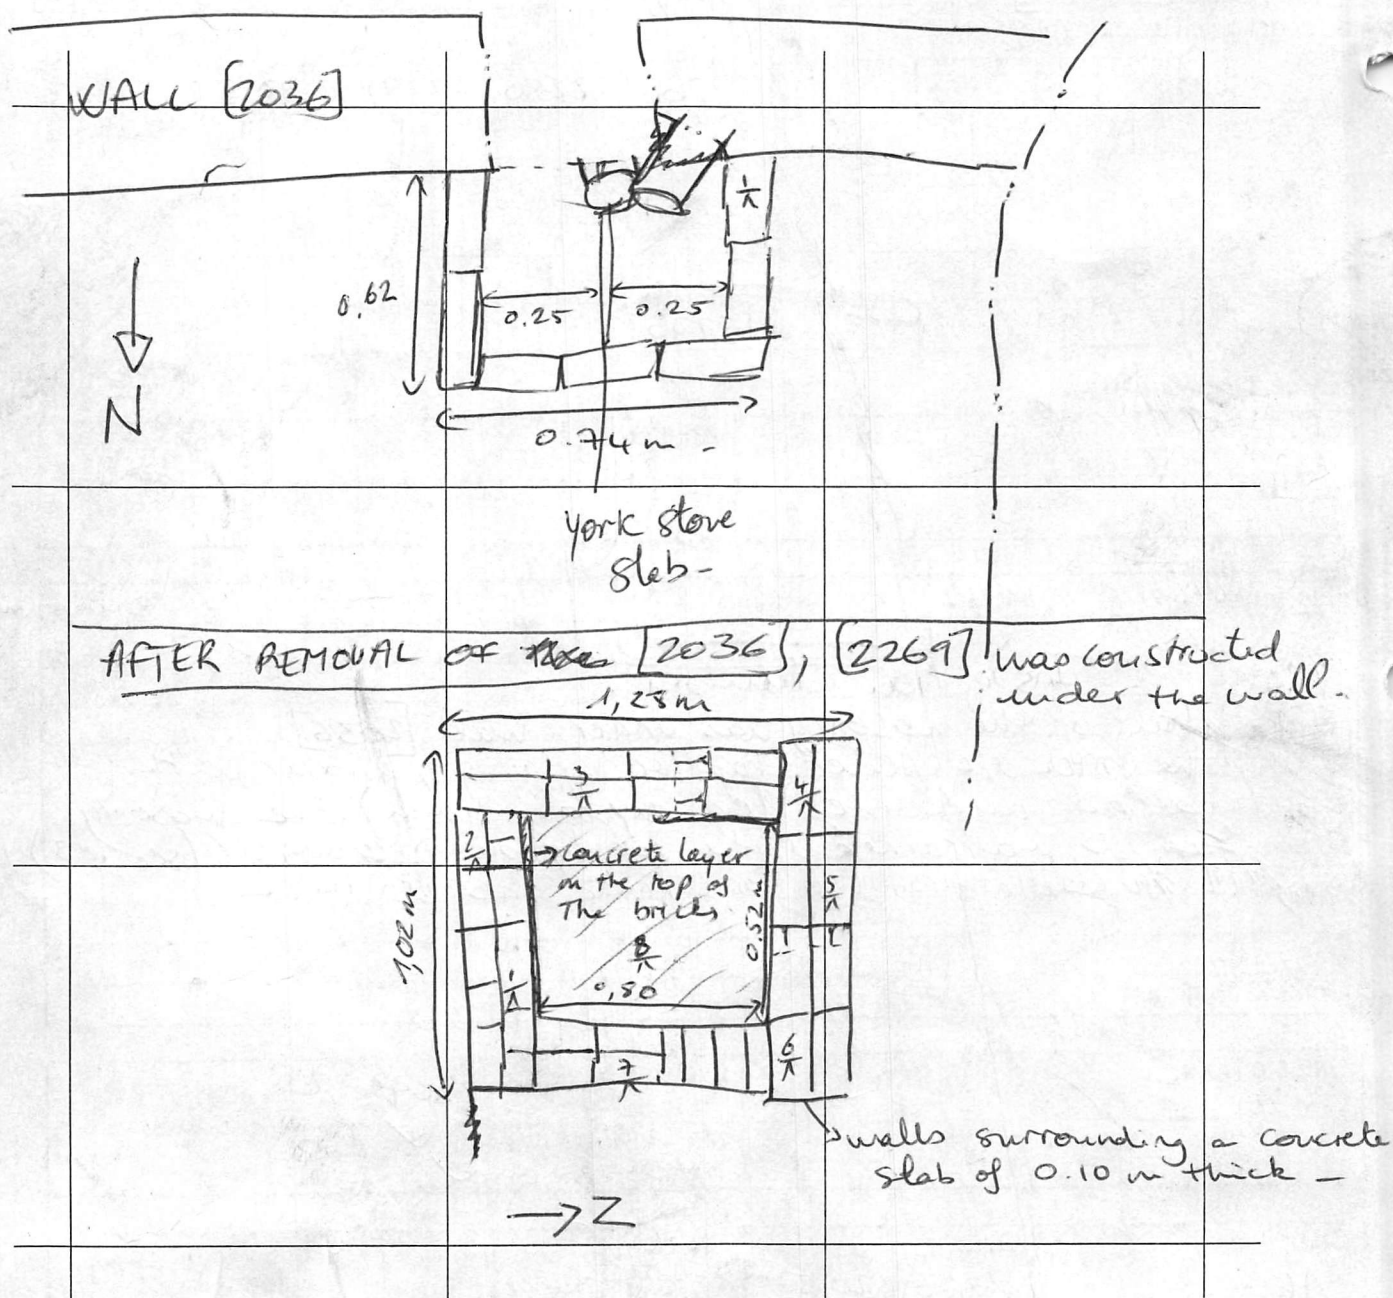 WALL [2036]
1
0.62
0.25
0.25
N
0.74 m -
York stone
slab -
AFTER REMOVAL OF [2036], [2269] was constructed
under the wall -
1,28m
3
4
2
→ Concrete layer
on the top of
The bricks.
5
0.52m
1,02m
8
1
0,80
6
7
walls surrounding a concrete
slab of 0.10 m thick -
→ N